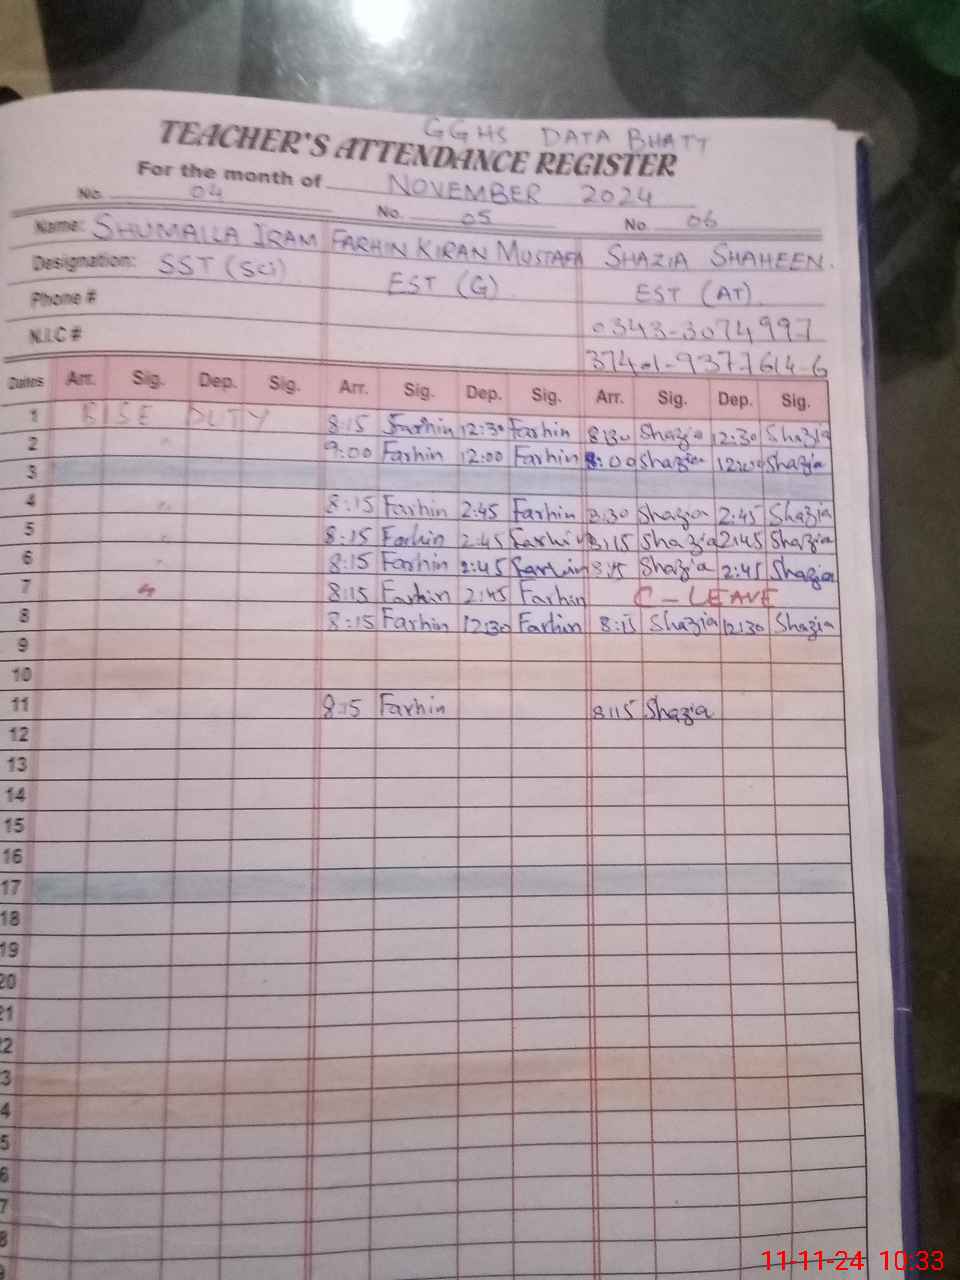 GGHS DATA BHATT
TEACHER'S ATTENDANCE REGISTER
For the month of NOVEMBER 2024
No. 04 No. 05 No. 06
Name: SHUMAILA IRAM FARHIN KIRAN MUSTAFA SHAZIA SHAHEEN.
Designation: SST (Sci) EST (G) EST (AT).
Phone # 0343-3074997
N.I.C # 37401-9377614-6
Dates Arr. Sig. Dep. Sig. Arr. Sig. Dep. Sig. Arr. Sig. Dep. Sig.
1 RISE DUTY 8:15 Farhin 12:30 Farhin 8:30 Shazia 12:30 Shazia
2 9:00 Farhin 12:00 Farhin 8:00 Shazia 12:00 Shazia
3
4 8:15 Farhin 2:45 Farhin 8:30 Shazia 2:45 Shazia
5 8:15 Farhin 2:45 Farhin 8:15 Shazia 2:45 Shazia
6 8:15 Farhin 2:45 Farhin 8:15 Shazia 2:45 Shazia
7 8:15 Farhin 2:45 Farhin C-LEAVE
8 8:15 Farhin 12:30 Farhin 8:15 Shazia 12:30 Shazia
9
10
11 8:15 Farhin 8:15 Shazia
12
13
14
15
16
17
18
19
20
21
2
3
4
5
6
7
8
11-11-24 10:33